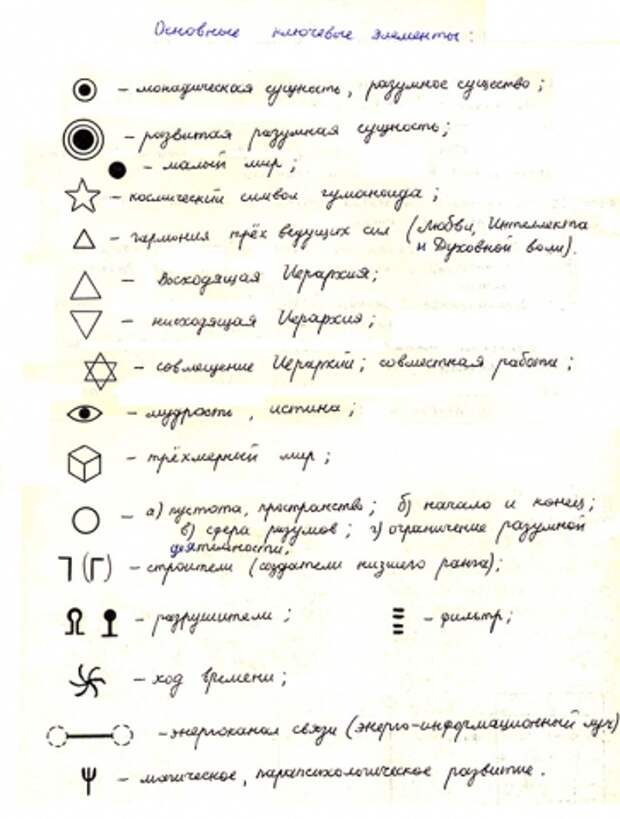 Основные ключевые элементы:
– монадическая сущность, разумное существо;
– развитая разумная сущность;
– малый мир;
– космический символ гуманоида;
– гармония трёх ведущих сил (Любви, Интеллекта
и Духовной воли).
– Восходящая Иерархия;
– нисходящая Иерархия;
– совмещение Иерархий; совместная работа;
– мудрость, истина;
– трёхмерный мир;
– а) пустота, пространство; б) начало и конец;
в) сфера разумов; г) ограничение разумной
деятельности;
– строители (создатели низшего ранга);
– разрушители; – фильтр;
– ход времени;
– энергоканал связи (энерго-информационный луч)
– магическое, парапсихологическое развитие.